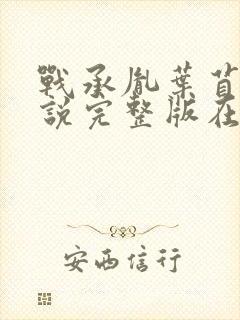 戰承胤葉苜
說完整版在
安西信行